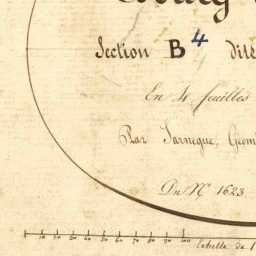 Section B 4 dite
En 4 feuilles
Par Sarnegue, Géom
Du N° 1623
10 20 30 40 50 60 70 80 90 100
Echelle de 1